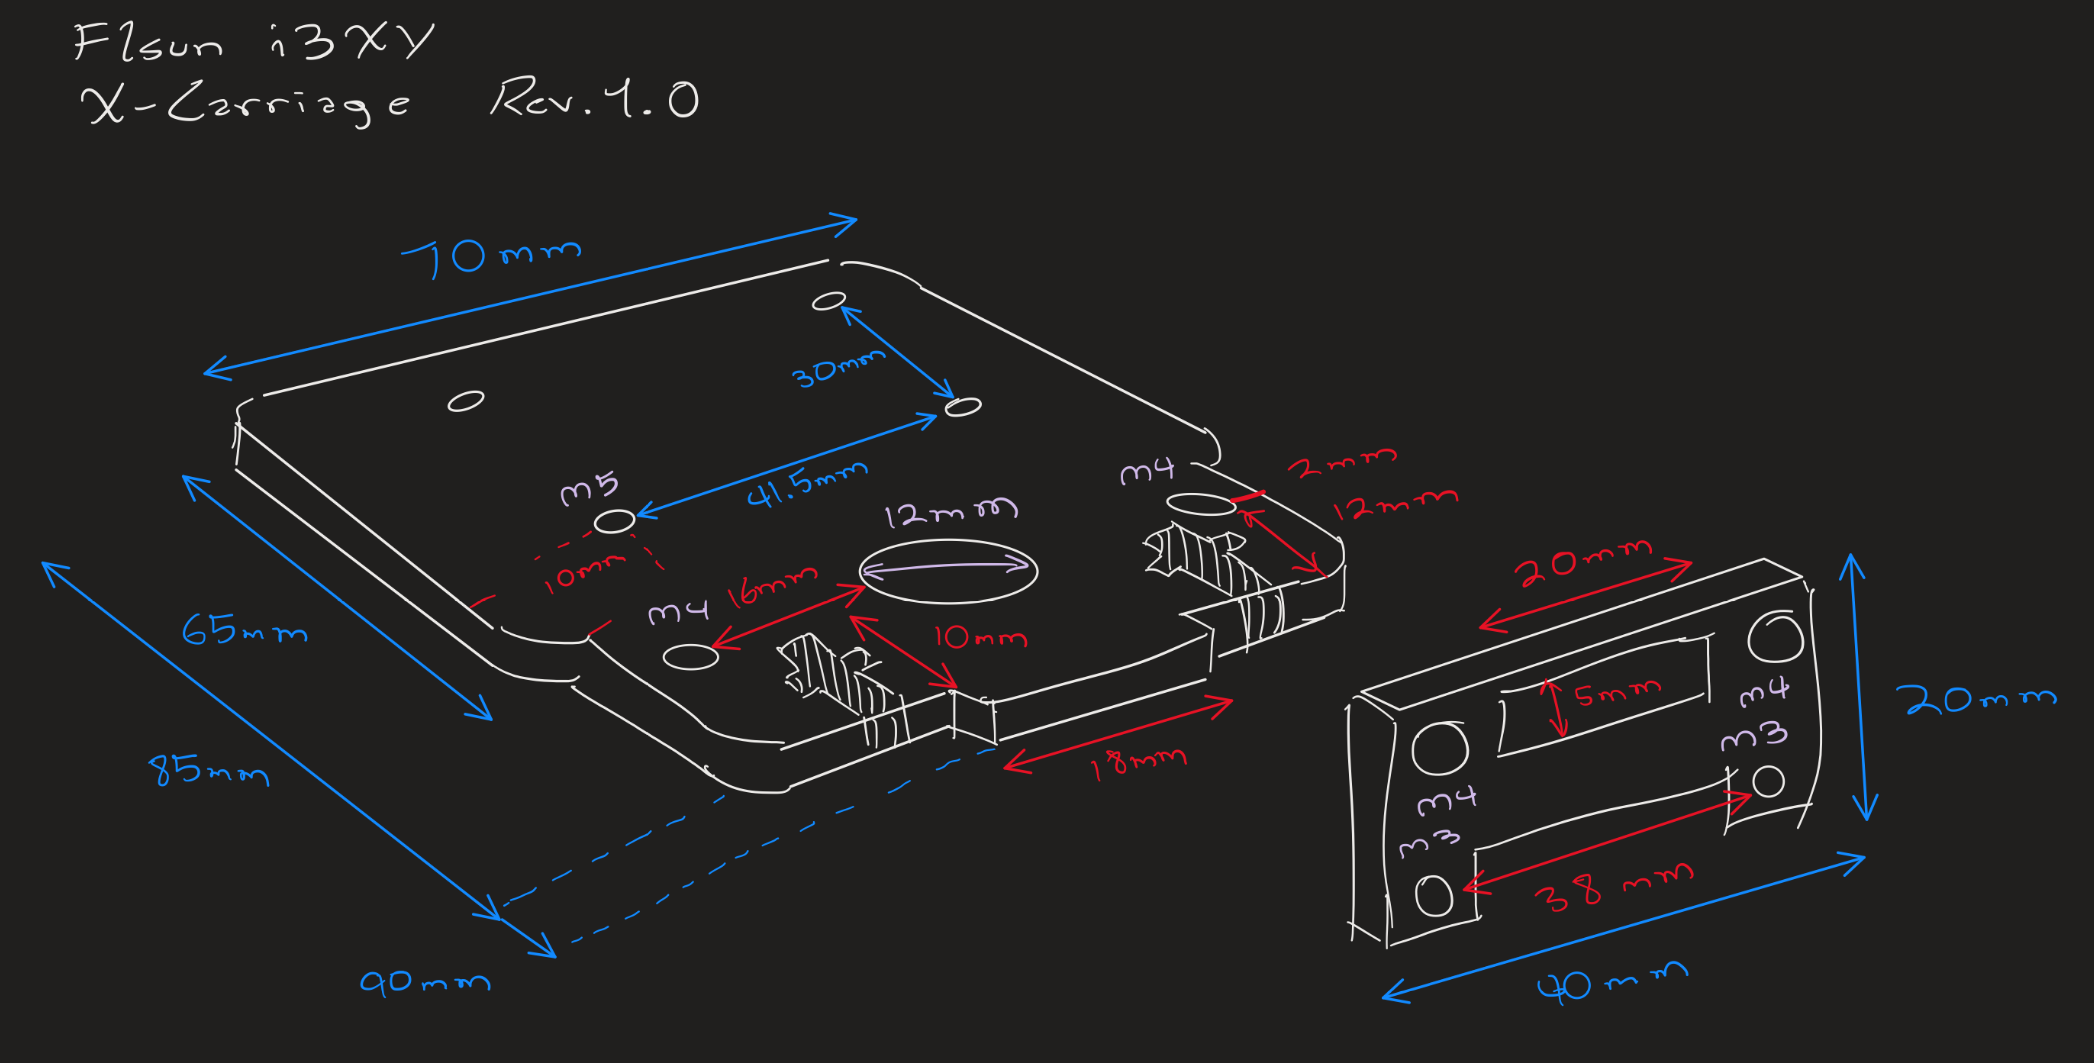 Flsun i3XY
X-Carriage Rev.1.0
70mm
30mm
41.5mm
m5
10mm
m4
16mm
12mm
10mm
m4
2mm
12mm
18mm
65mm
85mm
90mm
20mm
5mm
m4
m3
m4
m3
20mm
38mm
40mm